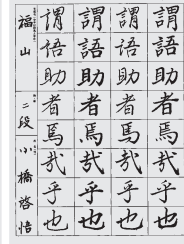 謂語助者焉哉乎也
謂語助者焉哉乎也
謂語助者焉哉乎也
謂語助者焉哉乎也
福山 二段 小橋啓悟